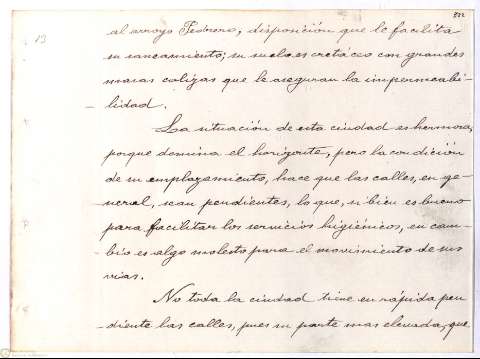 822
13
al arroyo Pedroso, disposición que le facilita
su saneamiento; su suelo es cretáceo con grandes
masas calizas que le aseguran la impermeabi-
-lidad.
La situación de esta ciudad es hermosa,
porque domina el horizonte, pero la condición
de su emplazamiento, hace que las calles, en ge-
-neral, sean pendientes, lo que, si bien es bueno
para facilitar los servicios higiénicos, en cam-
-bio es algo molesto para el movimiento de sus
vias.
No toda la ciudad tiene en rápida pen-
-diente las calles, pues su parte mas elevada, que